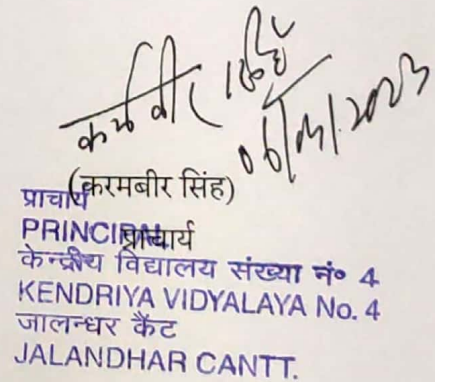 कर्मवीर सिंह
06/01/2023
(करमबीर सिंह)
प्राचार्य
PRINCIPAL
प्राचार्य
केन्द्रीय विद्यालय संख्या नं० 4
KENDRIYA VIDYALAYA No. 4
जालन्धर कैंट
JALANDHAR CANTT.